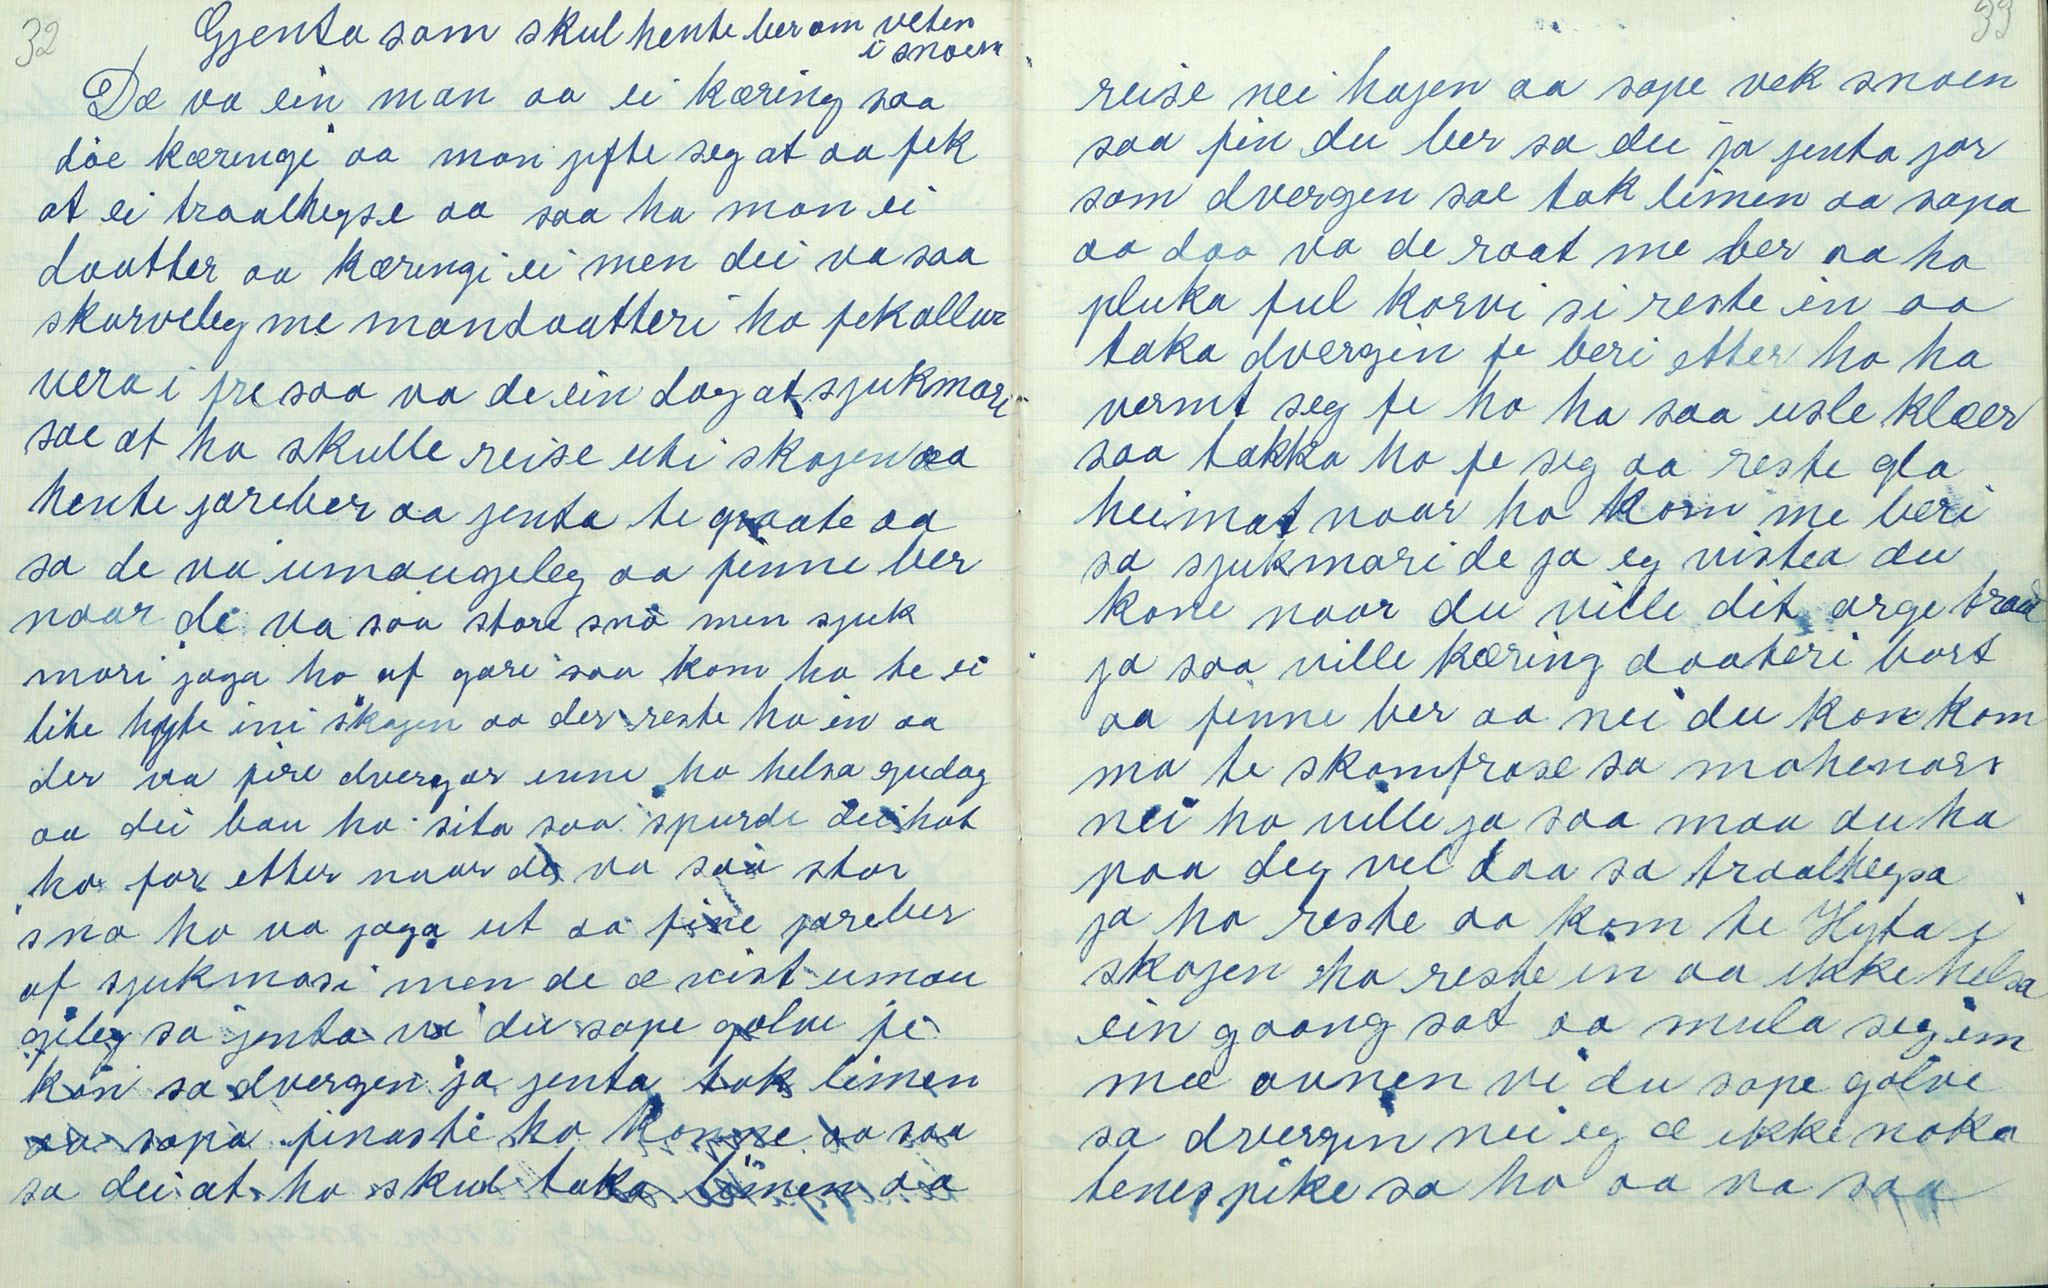 32
Gjenta som skul hente ber om veten
i snoen
Dæ va ein man aa ei kæring saa
döe kæringi aa man jifte seg at aa fek
at ei traalhegse aa saa ha man ei
daatter aa kæringi ei men dei va saa
skarveleg me mandaatteri ho fek allver
vera i fre saa va de ein dag at sjukmori
sae at ho skulle reise uti skojen aa
hente jareber aa jenta te graate aa
sa de va umaugeleg aa finne ber
naar de va saa store snö men sjuk
mori jaga ho af gare saa kom ho te ei
lite hyte ini skogen aa der reste ho in aa
der va fire dvergar inne ho helsa gudag
aa dei bau ho sita saa spurde dei hot
ho for etter naar de va saa stor
sna ho va jaga ut aa fine jareber
af sjukmosi men de æ vist umau
gileg sa jenta vi du sope golve fe
kon sa dvergen ja jenta tok limen
aa sopa finaste ho konne aa saa
sa dei at ho skul taka limen aa
33
reise nei hagen aa sope vek snoen
saa fin du ber sa dei ja jenta jor
som dvergen sae tok limen aa sopa
aa daa va de raat me ber aa ho
pluka ful korvi si reste in aa
taka dvergin fe beri etter ho ha
vermt seg fe ho ha saa usle klæer
saa takka ho fe seg aa reste gla
heimat naar ho kom me beri
sa sjukmori de ja eg viste a du
kone naar du ville dit arge traal
ja saa ville kæring daateri bort
aa finne ber aa nei du kon kom
ma te skamfrose sa mohenars
nei ho ville ja saa maa du ha
paa deg vel daa sa traalhegsa
ja ho reste aa kom te Hyta i
skojen ho reste in aa ikke helsa
ein gaang sat aa mula seg im
mæ avnen vi du sope golve
sa dvergin nei eg æ ikke noka
tenespike sa ho aa va saa